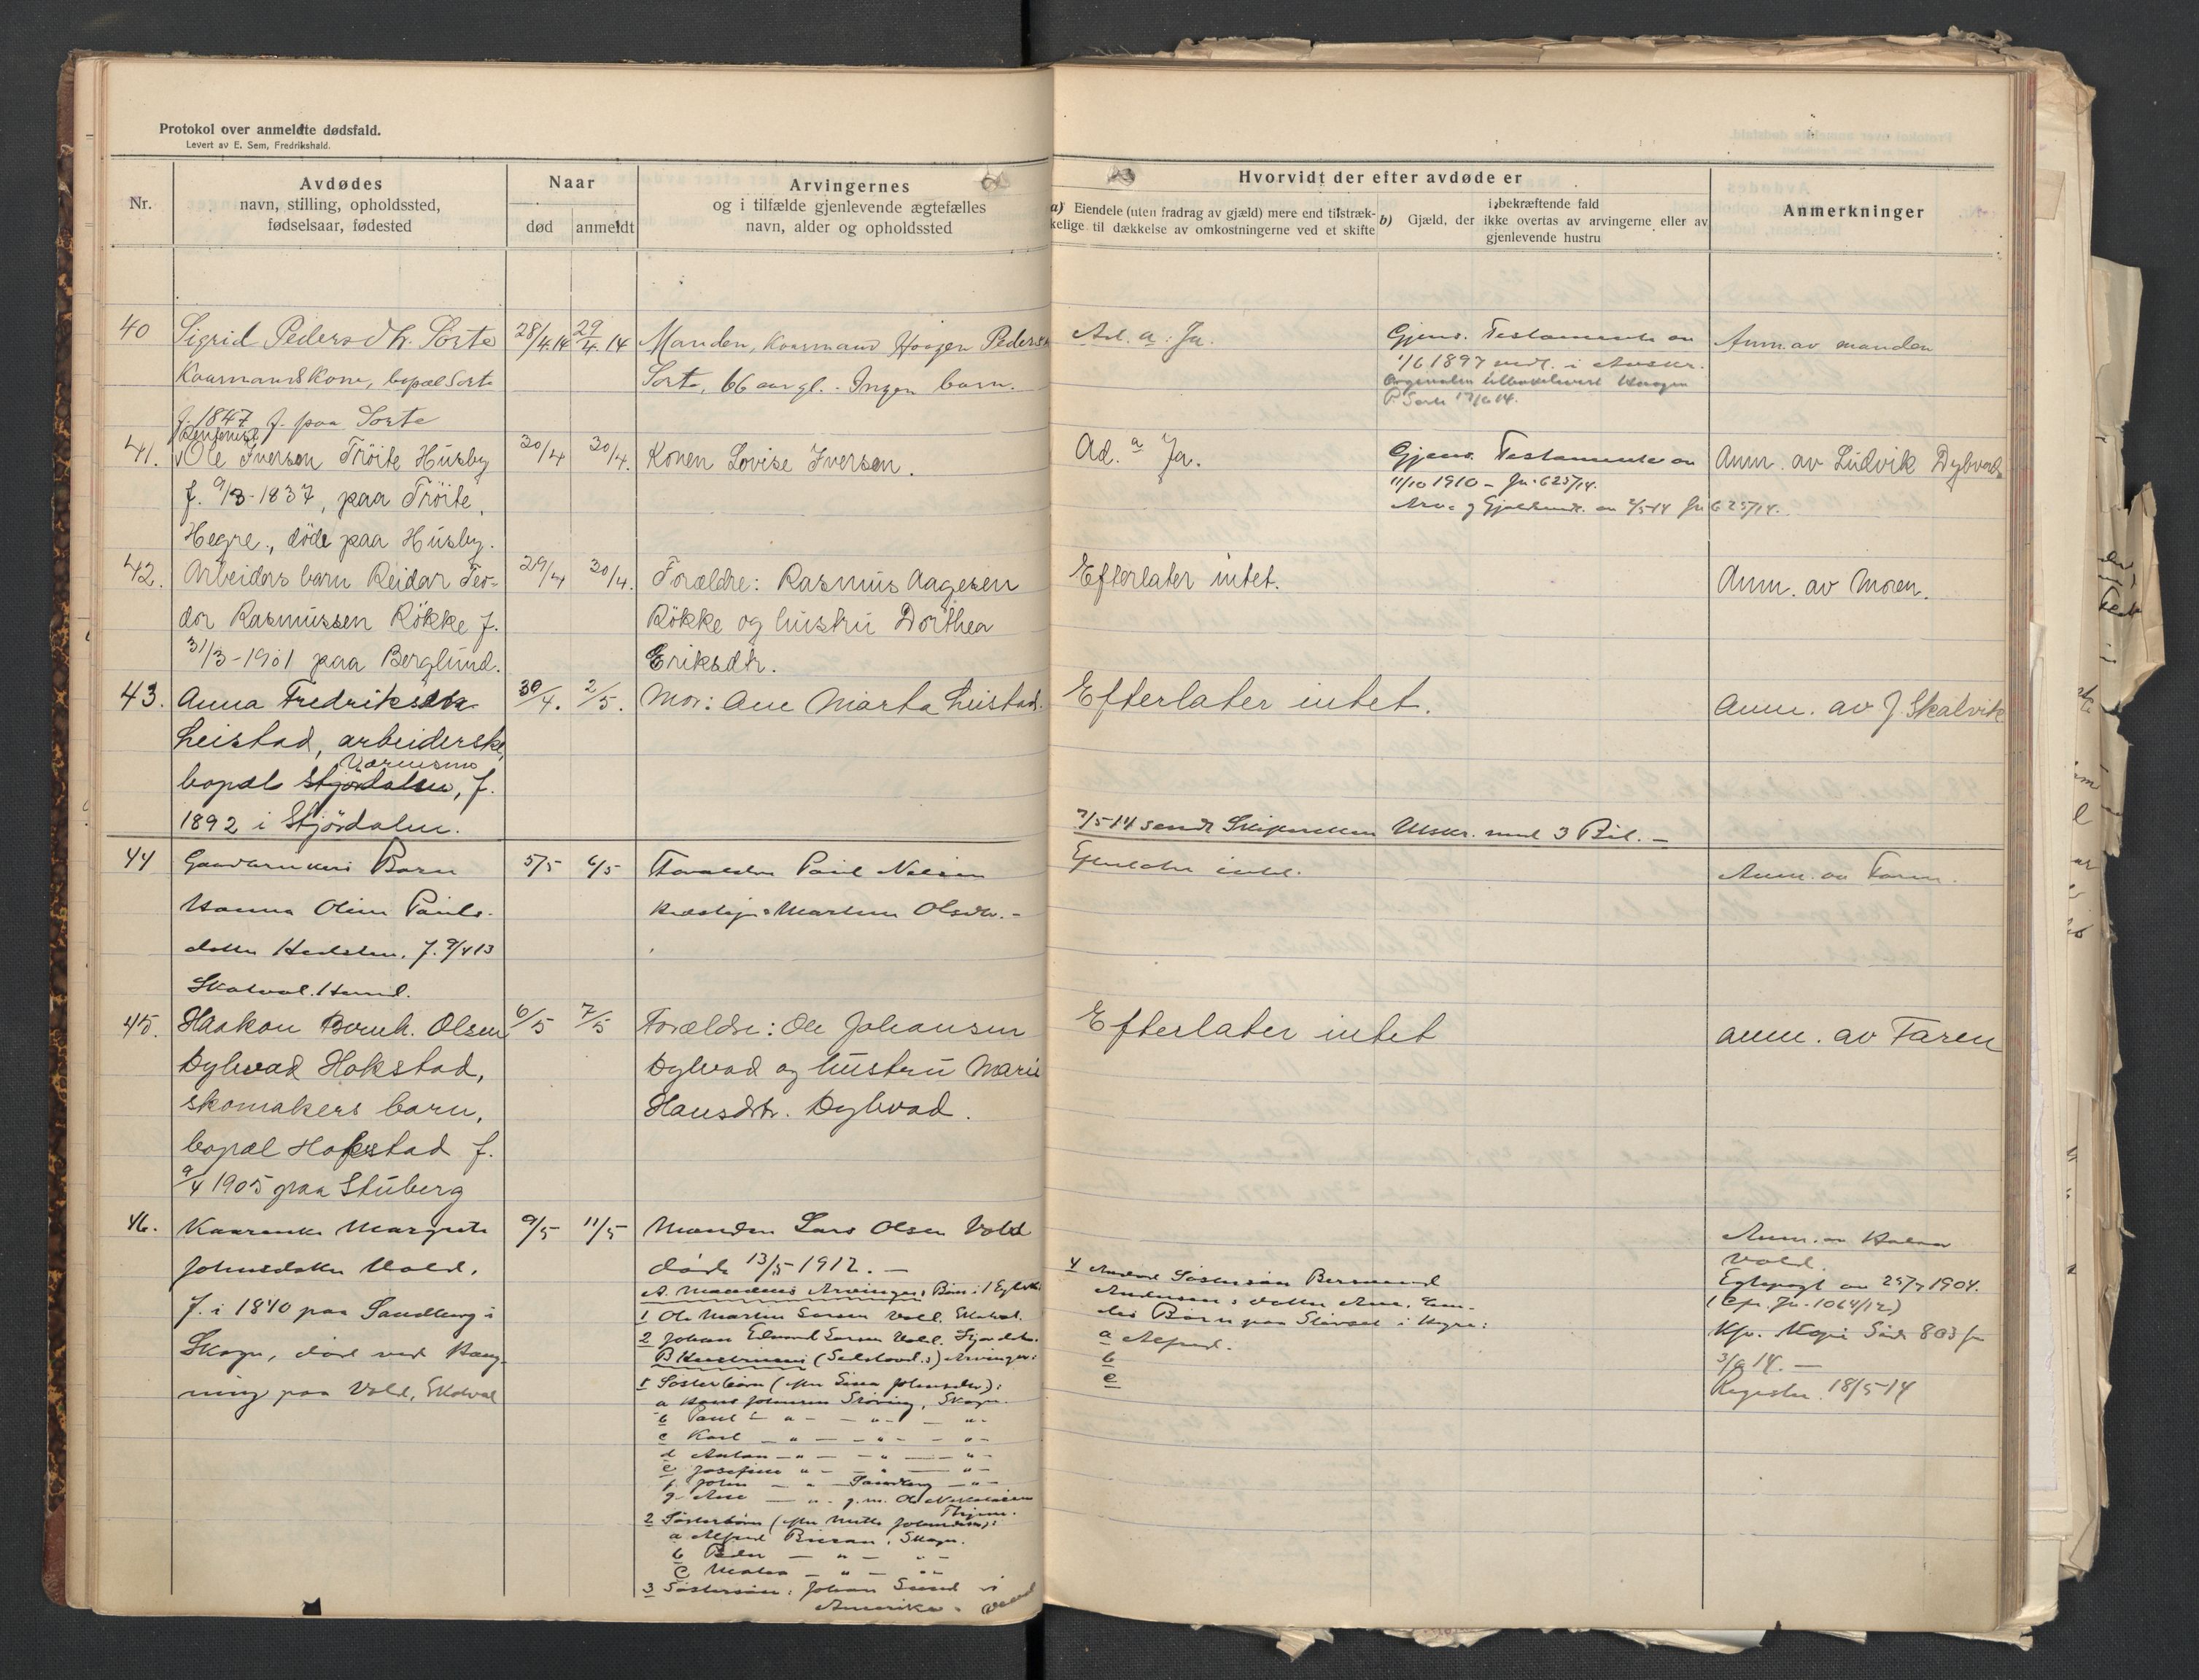 Protokol over anmeldte dødsfald.
Levert av E. Sem, Fredrikshald.
Nr.
Avdødes
navn, stilling, opholdssted,
fødselsaar, fødested
Naar
død
anmeldt
Arvingernes
og i tilfælde gjenlevende ægtefælles
navn, alder og opholdssted
Hvorvidt der efter avdøde er
a) Eiendele (uten fradrag av gjæld) mere end tilstræk-
kelige til dækkelse av omkostningerne ved et skifte
i bekræftende fald
b) Gjæld, der ikke overtas av arvingerne eller av
gjenlevende hustru
Anmerkninger
40
Sigrid Pedersdtr. Sorte
Kaarmandskone, bopæl Sorte
f. 1847 f. paa Sorte
28/4.14
29/4.14
Manden, Kaarmand Haagen Pedersen
Sorte, 66 aar gl. - Ingen barn.
Ad. a: Ja.
Gjens. Testamente av
1/6 1897
P. Sorte 17/6 14.
Anm. av manden
41.
Ole Iversen Trøite Husby
f. 9/3-1837, paa Trøite,
Hegre., døde paa Husby.
30/4
30/4.
Konen Lovise Iversen.
Ad. a Ja.
Gjens. Testamente av
11/10 1910 - Jn. 625/14.
Arv. og Gjeldsmdt. av 2/5 14 Jn 625/14.
Anm. av Ludvik Dybvad
42.
Arbeiders barn Reidar Teo-
dor Rasmussen Røkke f.
31/3-1901 paa Berglund.
29/4
30/4.
Forældre: Rasmus Aagesen
Røkke og hustru Dorthea
Eriksdtr.
Efterlater intet.
Anm. av Moren.
43.
Anna Fredriksdtr
Leistad, arbeiderske,
Værnesmo
bopæl Stjørdalen, f.
1892 i Stjørdalen.
30/4.
2/5.
Mor: Ane Marta Leistad.
Efterlater intet.
Anm. av J. Skalvik
7/5-14 sendt Utskr. med 3 Bil. -
44
Gaardbrukers Barn
Hanna Oline Pauls-
datter f. 9/4 13
Skatval
5/5
6/5
Forældre Paul Nelsen
Martine Olsdtr. -
Efterlater intet.
Anm. av Faren.
45.
Haakon Bernh. Olsen
Dybvad Hokstad,
skomakers barn,
bopæl Hokstad f.
9/4 1905 paa Stuberg
6/5
7/5
Forældre: Ole Johansen
Dybvad og hustru Marie
Hansdtr. Dybvad.
Efterlater intet
anm. av Faren
46.
Margrete
Johnsdatter Vold,
f. i 1840 paa Sandberg i
Skogn, død ved Hæng-
ning paa Vold, Skatval
9/5
11/5
Manden Lars Olsen Vold
døde 13/5-1912. -
A. Mandens Arvinger: Børn i 1 Egtesk.
1 Ole Martin Larsen Vold, Skatval.
2 Johan Edvard Larsen Vold. Stjørdalen.
B Hustruens (Selvmord.s) Arvinger:
1 Søsterbørn (efter Johnsdtr):
a Hans Johnsen Skogn.
b Paul - " - - " - - " -
c Karl - " - - " - - " -
d Anton - " - - " - - " -
e Josefine " - - " - - " -
f John - " - Sandberg - " -
g Ane - " - g. m. Ole
2 Søsterbørn (efter Mette Johnsdtr):
a Alfred Skogn.
b Peder - " - " -
c - " - " -
3 Søstersøn: Johan Sund i
Amerika.
4 Søstersøn
Andersens datter Ane,
Børn paa i Hegre:
a Alfred.
b
c
Anm. av
Vold.
Egtepagt av 25/7 1904.
(Cfr. Jn. 1064/12)
Kfr. Kopi Side 803 Jn
3/9 14. -
Registr. 18/5-14